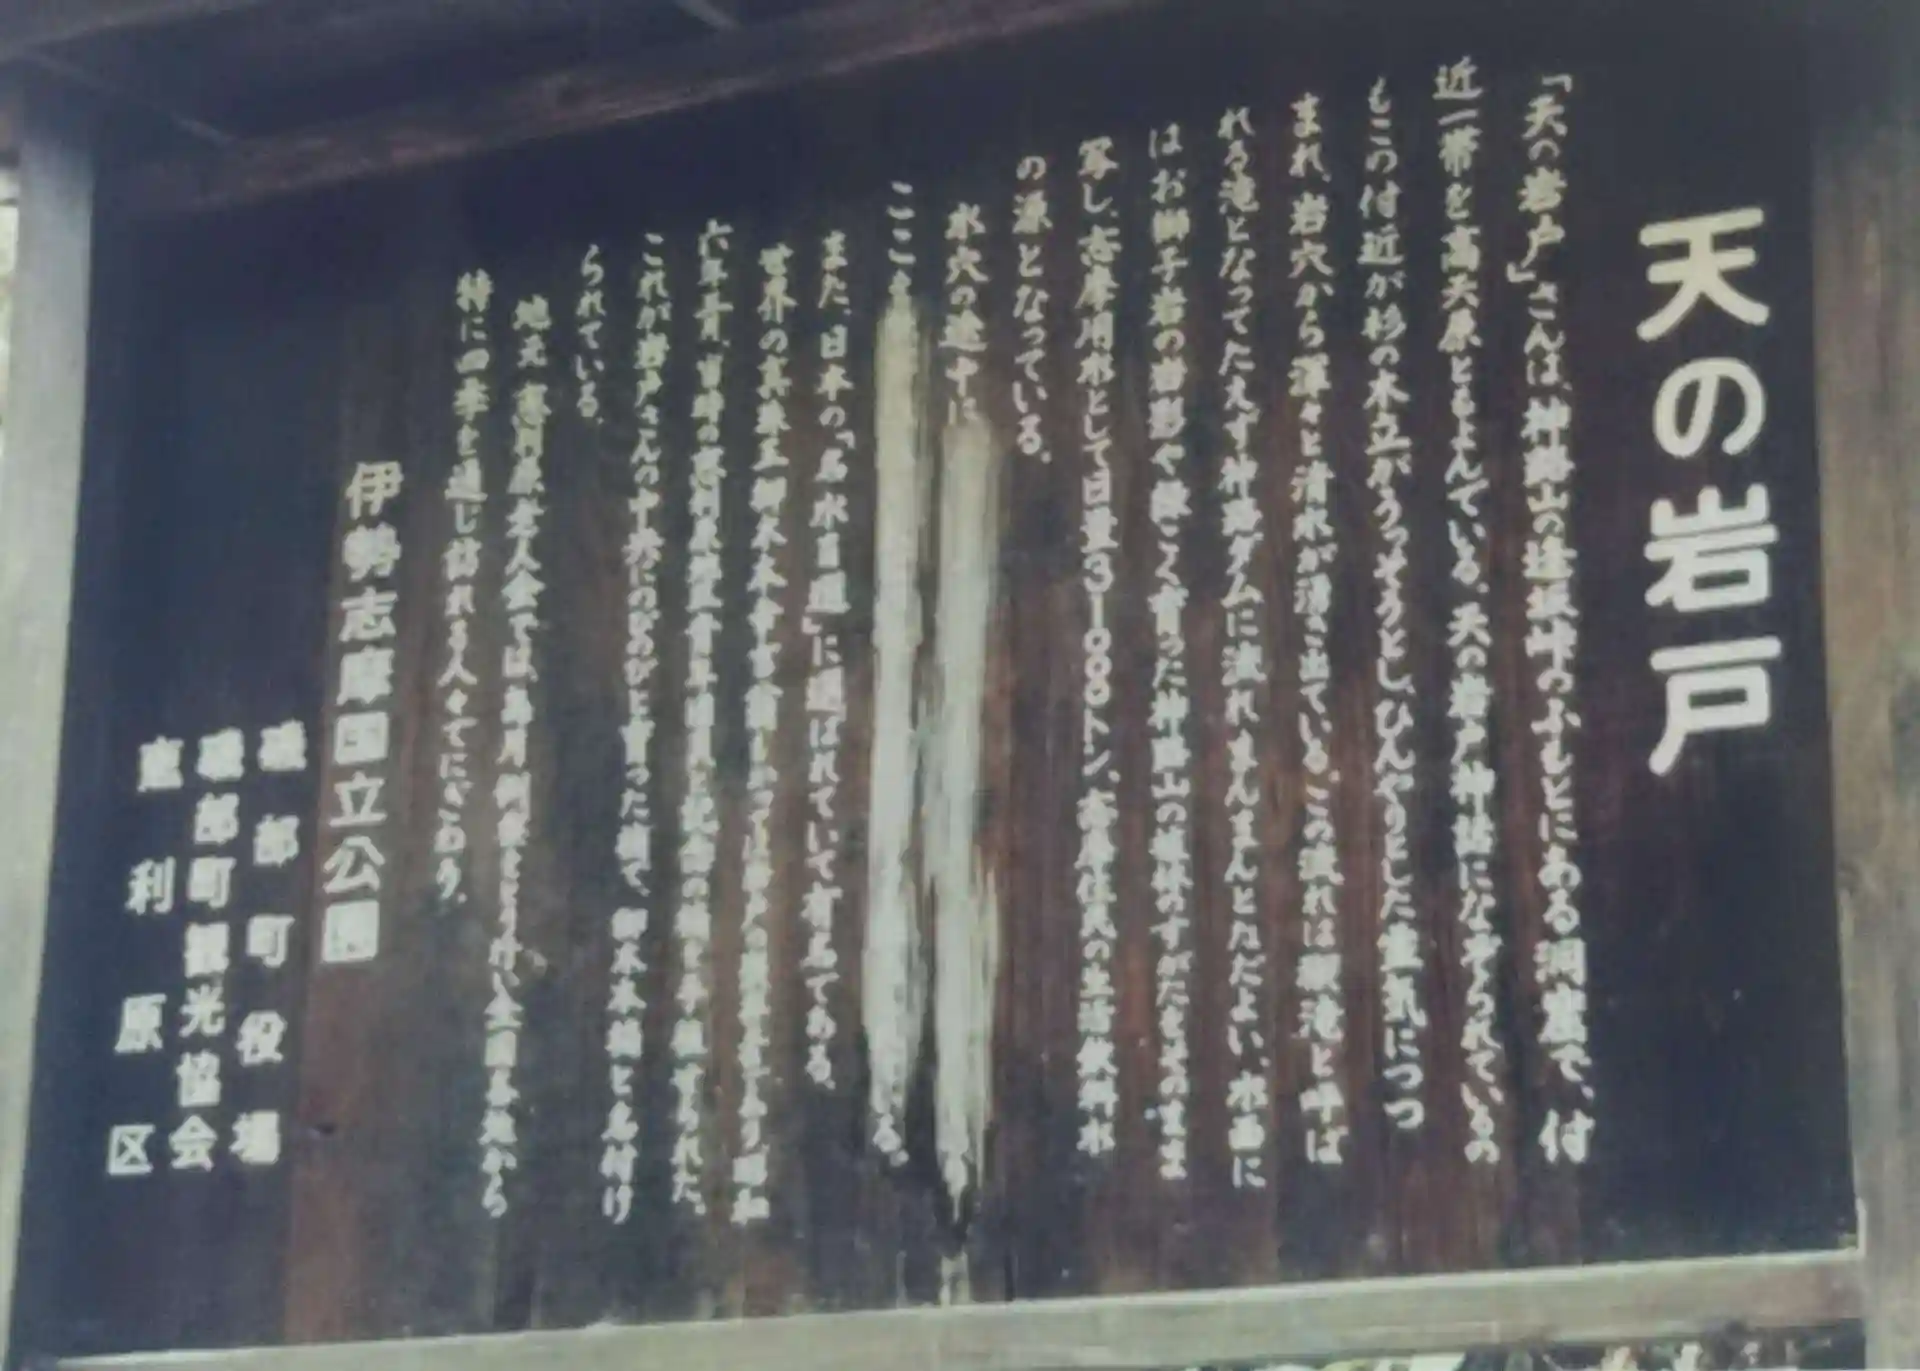 天の岩戸
「天の岩戸」さんは、神路山の逢坂峠のふもとにある洞窟で、付
近一帯を高天原ともよんでいる。天の岩戸神話になぞられているの
もこの付近が杉の木立がうっそうとし、ひんやりとした霊気につつ
まれ、岩穴から渾々と清水が湧き出ている。この流れは禊滝と呼ば
れる滝となってたえず神路ダムに流れまんまんとただよい、水面に
はお獅子岩の岩影や根づよく育った神路山の森林のすがたをそのまま
写し、志摩用水として日量31000トン、志摩住民の生活飲料水
の源となっている。
水穴の途中に
ここを る。
また、日本の「名水百選」に選ばれていて有名である。
世界の真珠王御木本幸吉翁
六年 月、当時の恵利原 青年団員 記念 手植 された。
これが岩戸さんの中央にのびのびと育った楠で、御木本楠と名付け
られている。
地元 恵利原老人会では、毎月例祭をとり行い全国各地から
特に四季を通じ訪れる人々でにぎわう。
伊勢志摩国立公園
磯部町役場
磯部町観光協会
恵利原区